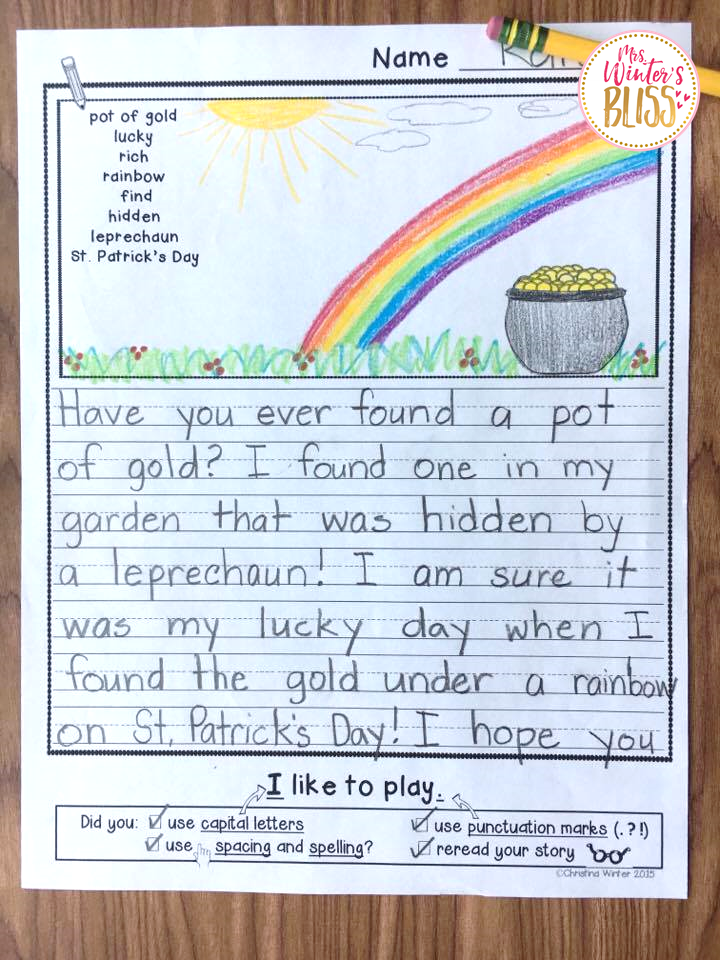 Name
Mrs.
Winter's
BLISS
pot of gold
lucky
rich
rainbow
find
hidden
leprechaun
St. Patrick's Day
Have you ever found a pot
of gold? I found one in my
garden that was hidden by
a leprechaun! I am sure it
was my lucky day when I
found the gold under a rainbow
on St. Patrick's Day! I hope you
I like to play.
Did you: use capital letters use punctuation marks (. ? !)
use spacing and spelling? reread your story
©Christina Winter 2015